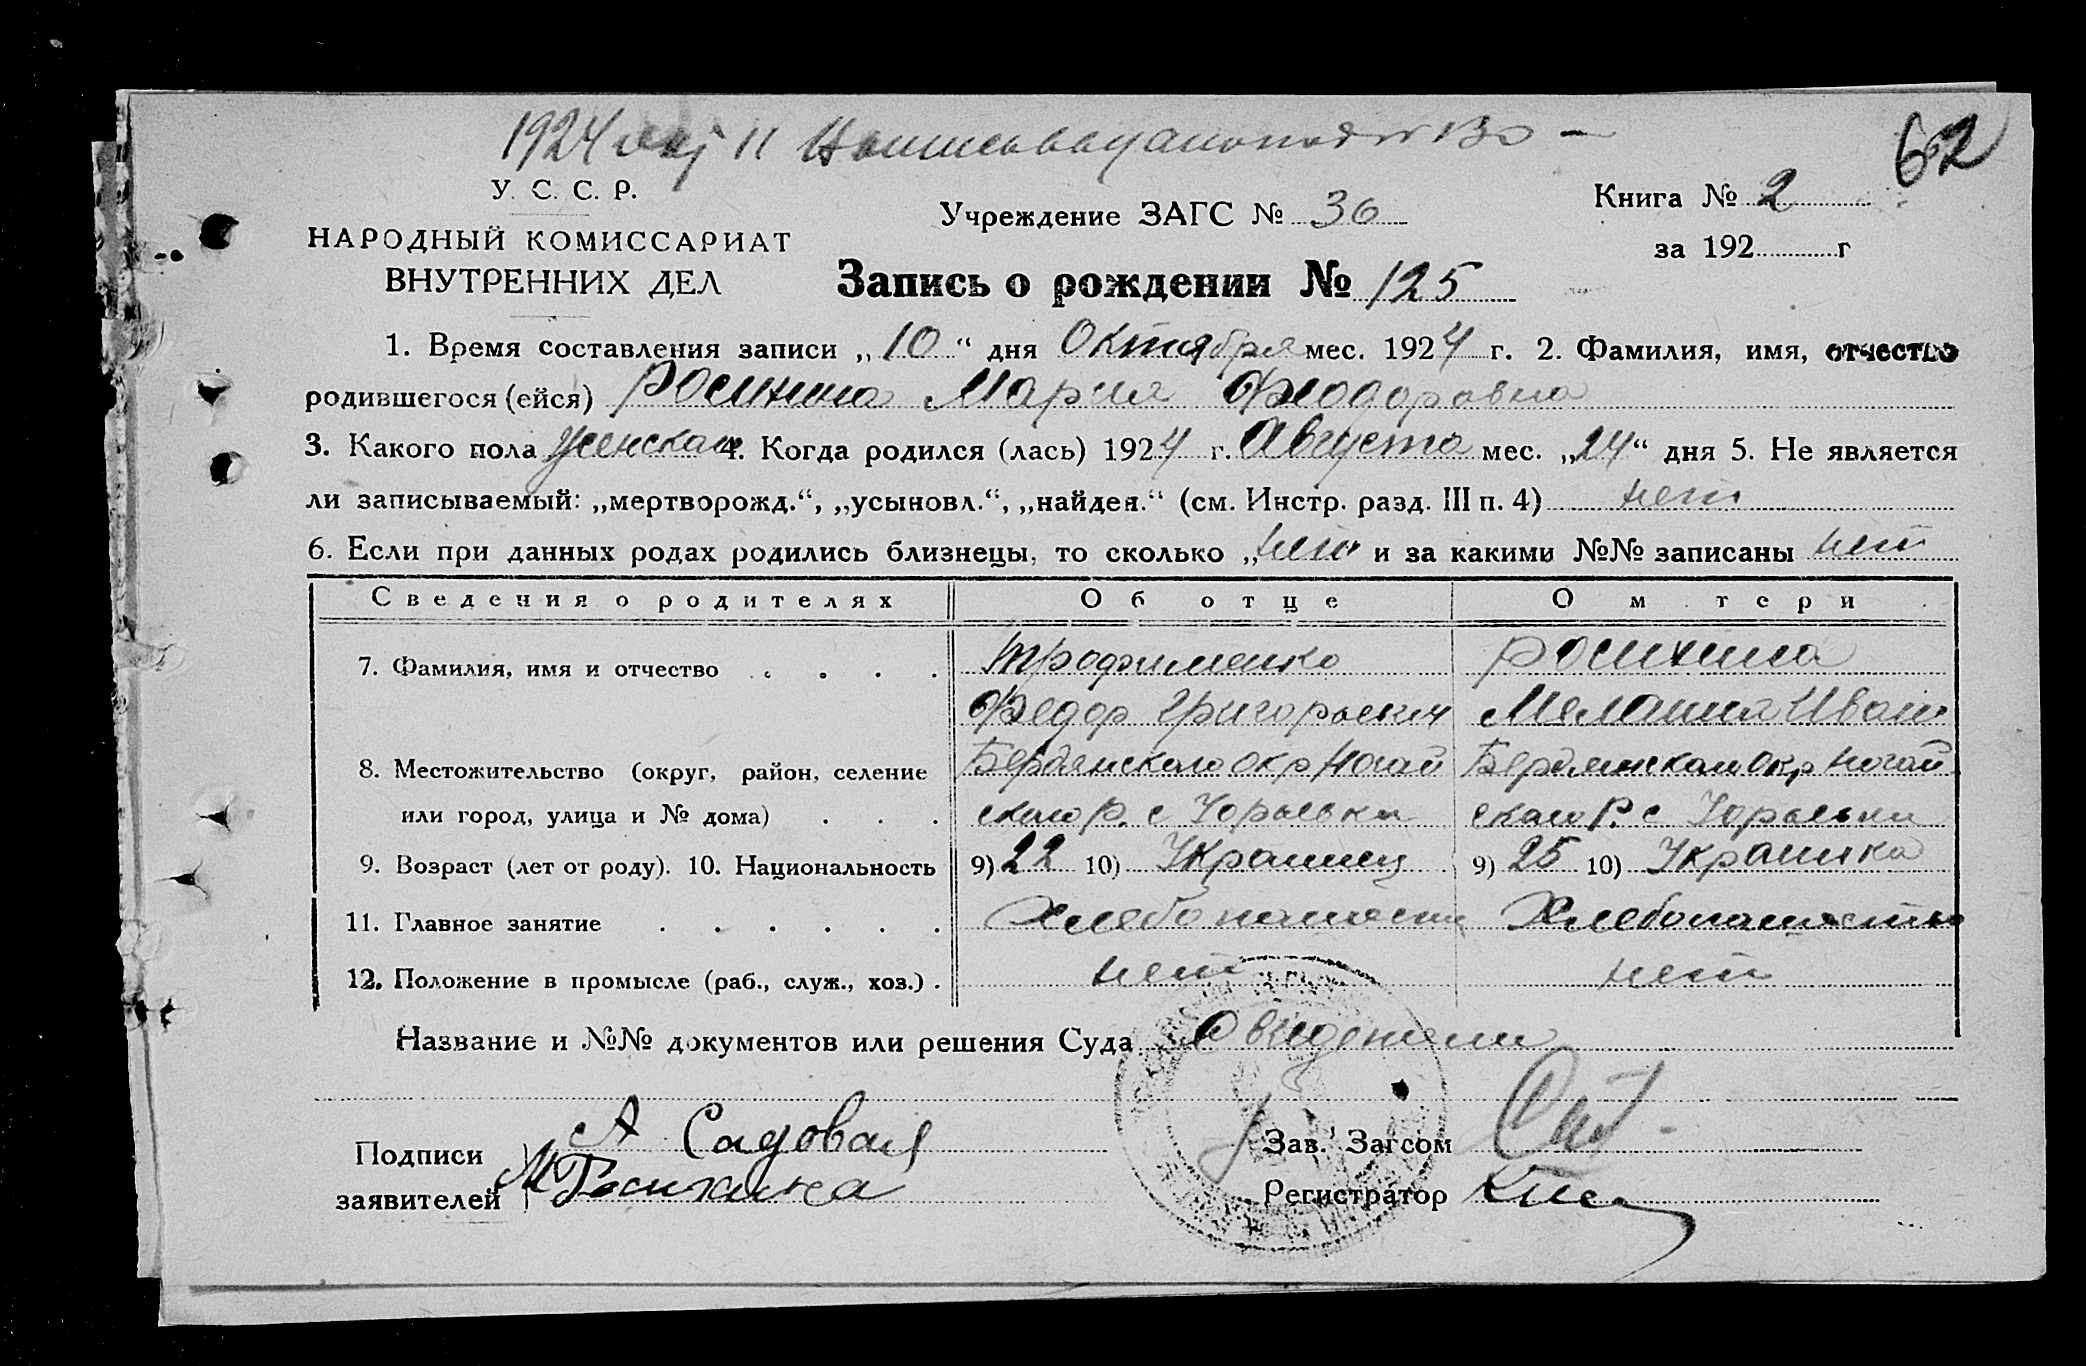 1924
62
У. С. С. Р.
НАРОДНЫЙ КОМИССАРИАТ
ВНУТРЕННИХ ДЕЛ
Учреждение ЗАГС № 36
Книга № 2
за 192 г
Запись о рождении № 125
1. Время составления записи „10“ дня Октября мес. 1924 г. 2. Фамилия, имя, отчество
родившегося (ейся) Росихина Мария Феодоровна
3. Какого пола женская 4. Когда родился (лась) 1924 г. Августа мес. „24“ дня 5. Не является
ли записываемый: „мертворожд.“, „усыновл.“, „найден.“ (см. Инстр. разд. III п. 4) нет
6. Если при данных родах родились близнецы, то сколько „нет“ и за какими №№ записаны нет
Сведения о родителях Об отце О м тери
7. Фамилия, имя и отчество . . . . Трофименко Росихина
Федор Григорьевич Мелания Иван
8. Местожительство (округ, район, селение Бердянского окр Ногай Бердянского окр Ногай
или город, улица и № дома) . . . ского Р. с Юрьевки ского Р. с Юрьевки
9. Возраст (лет от роду). 10. Национальность 9) 22 10) Украинец 9) 25 10) Украинка
11. Главное занятие . . . . . . Хлебопашество Хлебопашество
12. Положение в промысле (раб., служ., хоз.) . нет нет
Название и №№ документов или решения Суда
Подписи
заявителей
А Садовая
М Росихина
Зав. Загсом
Регистратор